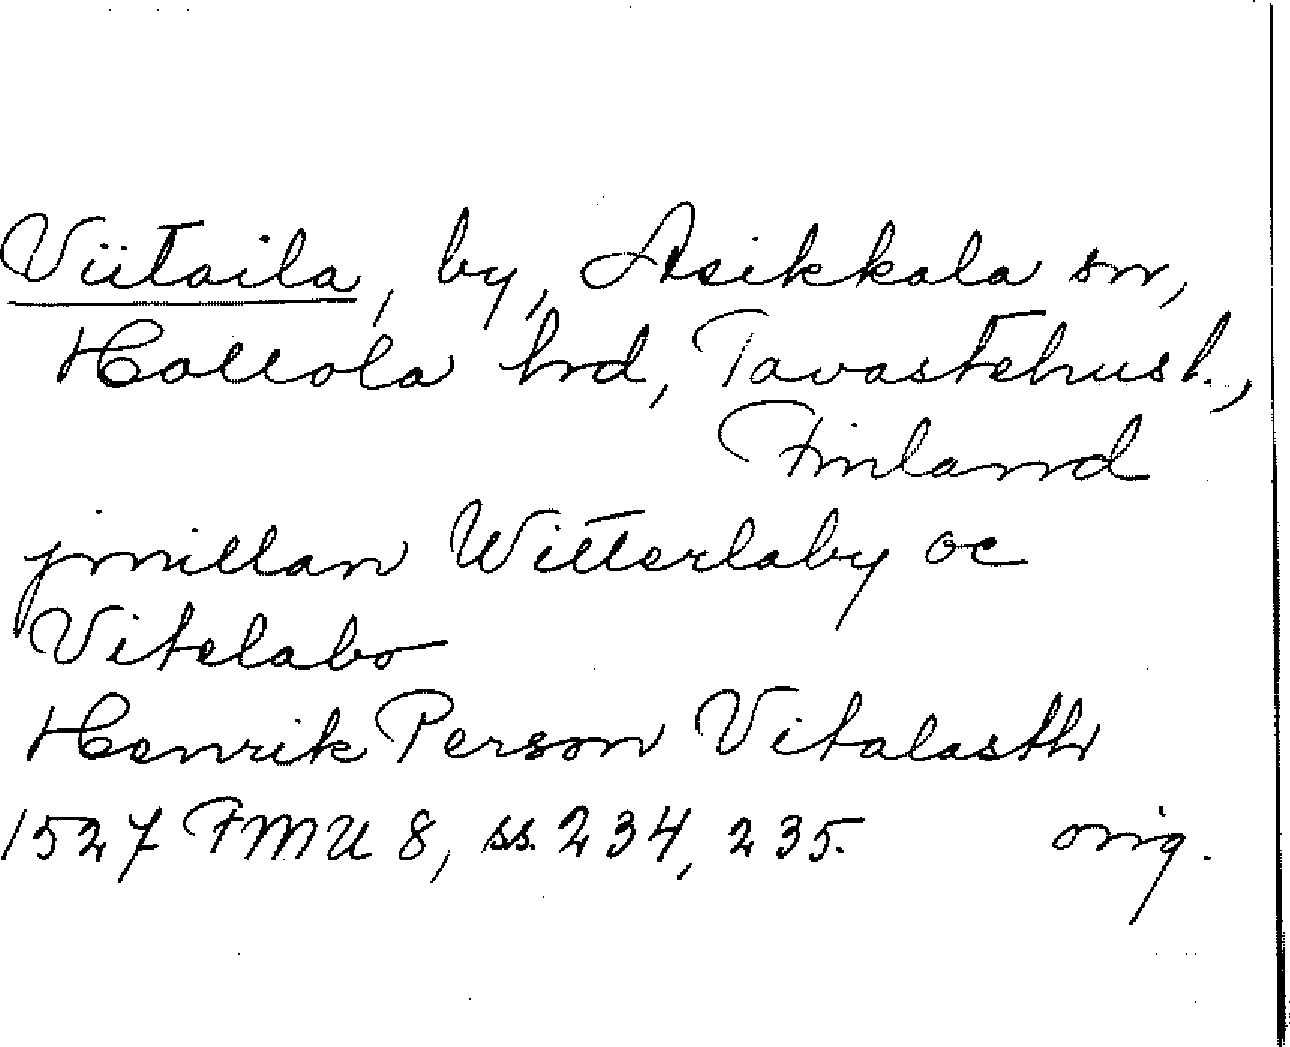 Viitaila, by, Asikkala sn,
Hollola hrd, Tavastehus l.,
Finland
jmillan Witterlaby oc
Vitelabo
Henrik Person Vitalasth
1527 FMU 8, ss. 234, 235. orig.